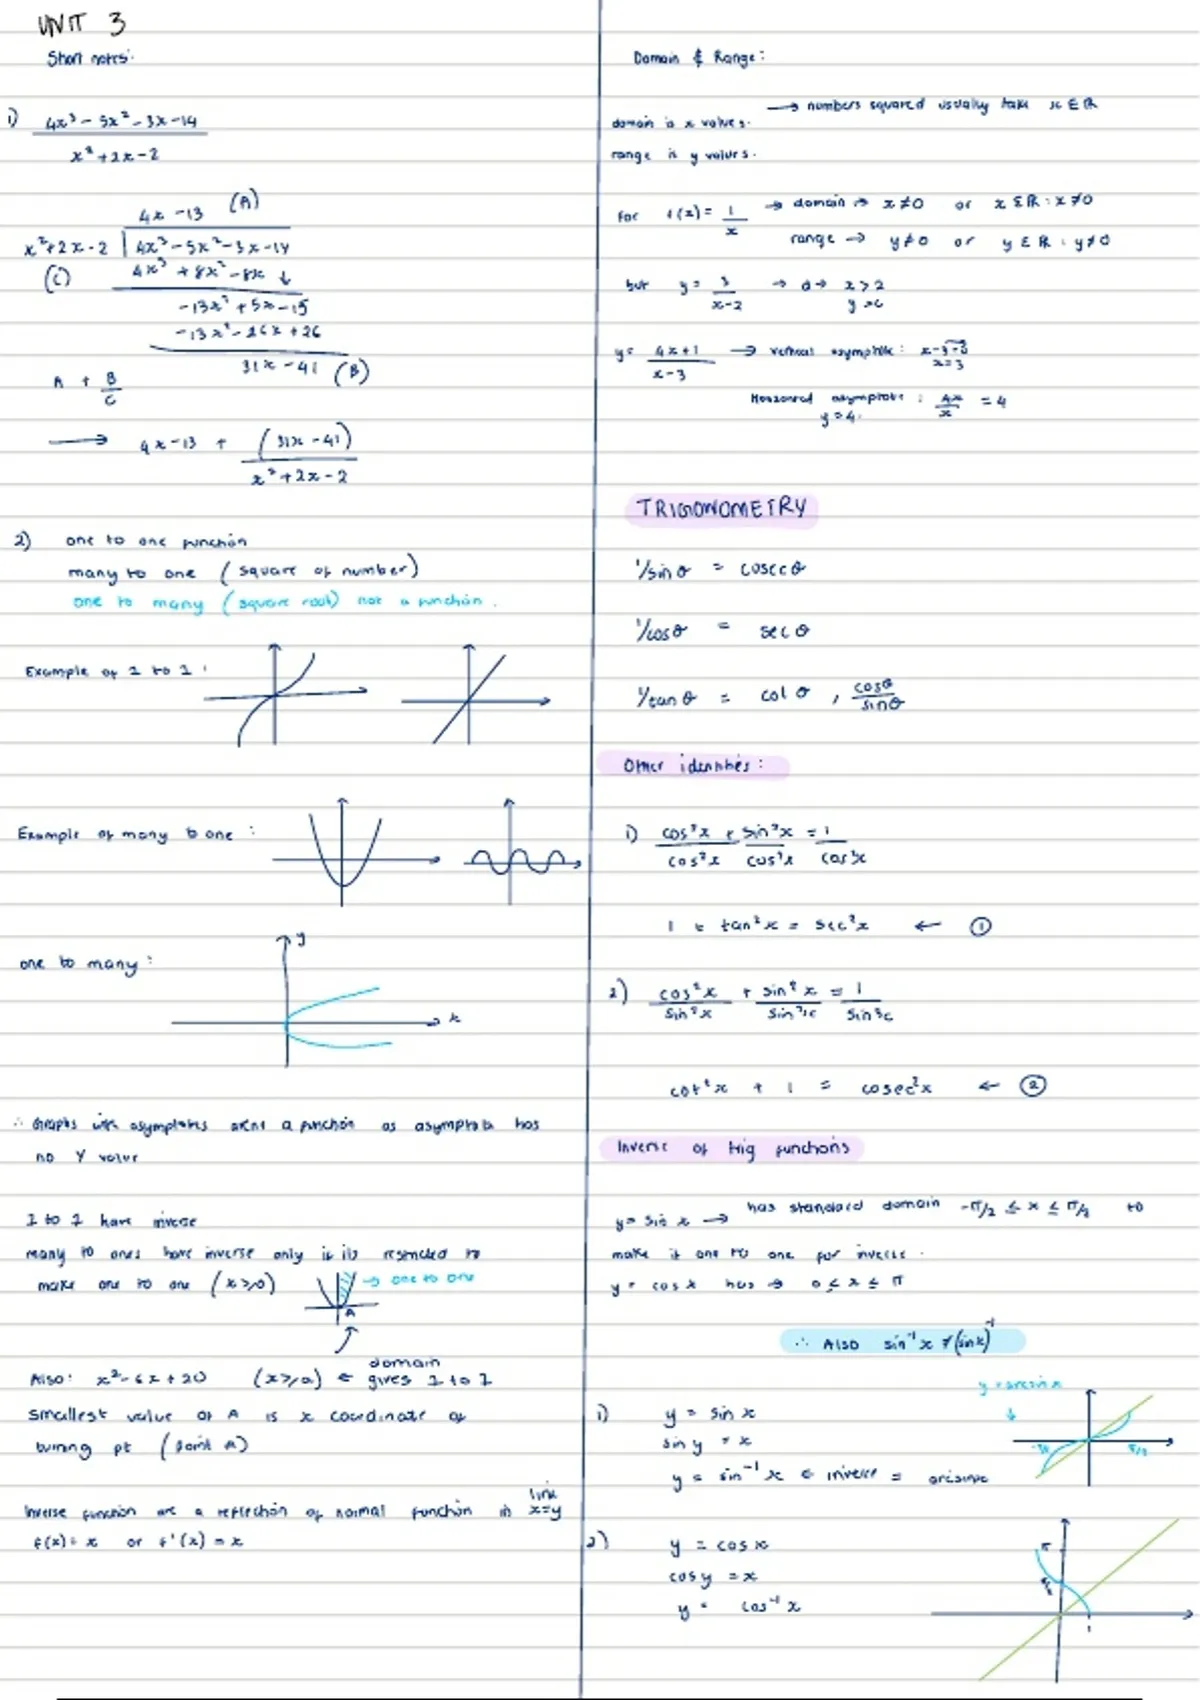 UNIT 3
Short notes:
1) 4x³ - 5x² - 3x - 14
x² + 2x - 2
4x - 13 (A)
x² + 2x - 2 | 4x³ - 5x² - 3x - 14
(C) 4x³ + 8x² - 8x ↓
-13x² + 5x - 15
-13x² - 26x + 26
31x - 41 (B)
A + B/C
→ 4x - 13 + (31x - 41)
x² + 2x - 2
2) one to one function
many to one (square of number)
one to many (square root) not a function.
Example of 1 to 1 :
Example of many to one :
one to many :
y
x
∴ Graphs with asymptotes arent a function as asymptote has
no Y value
1 to 1 have inverse
many to ones have inverse only if its restricted to
make one to one (x ≥ 0) → one to one
A
Also: x² - 6x + 20 (x ≥ a) ← domain gives 1 to 1
smallest value of A is x coordinate of
turning pt (point A)
Inverse function are a reflection of normal function in line x=y
f(x) = x or f⁻¹(x) = x
Domain & Range :
→ numbers squared usually take x ∈ ℝ
domain is x values.
range is y values.
for f(x) = 1/x → domain → x ≠ 0 or x ∈ ℝ : x ≠ 0
range → y ≠ 0 or y ∈ ℝ : y ≠ 0
but y = 3/(x-2) → d → x > 2
y = 4x + 1 / x - 3 → vertical asymptote : x-3=0
x=3
Horizontal asymptote : 4x/x = 4
y = 4.
TRIGONOMETRY
1/sin θ = cosec θ
1/cos θ = sec θ
1/tan θ = cot θ , cos θ/sin θ
Other identities :
1) cos²x/cos²x + sin²x/cos²x = 1/cos²x
1 + tan²x = sec²x ← ①
2) cos²x/sin²x + sin²x/sin²x = 1/sin²x
cot²x + 1 = cosec²x ← ②
Inverse of trig functions
y = sin x → has standard domain -π/2 ≤ x ≤ π/2 to
make it one to one for inverse.
y = cos x has → 0 ≤ x ≤ π
∴ Also sin⁻¹x ≠ (sin x)⁻¹
y = arcsin x
↓
1) y = sin x
sin y = x
y = sin⁻¹ x ← inverse = arcsinx
2) y = cos x
cos y = x
y = cos⁻¹ x
π
1